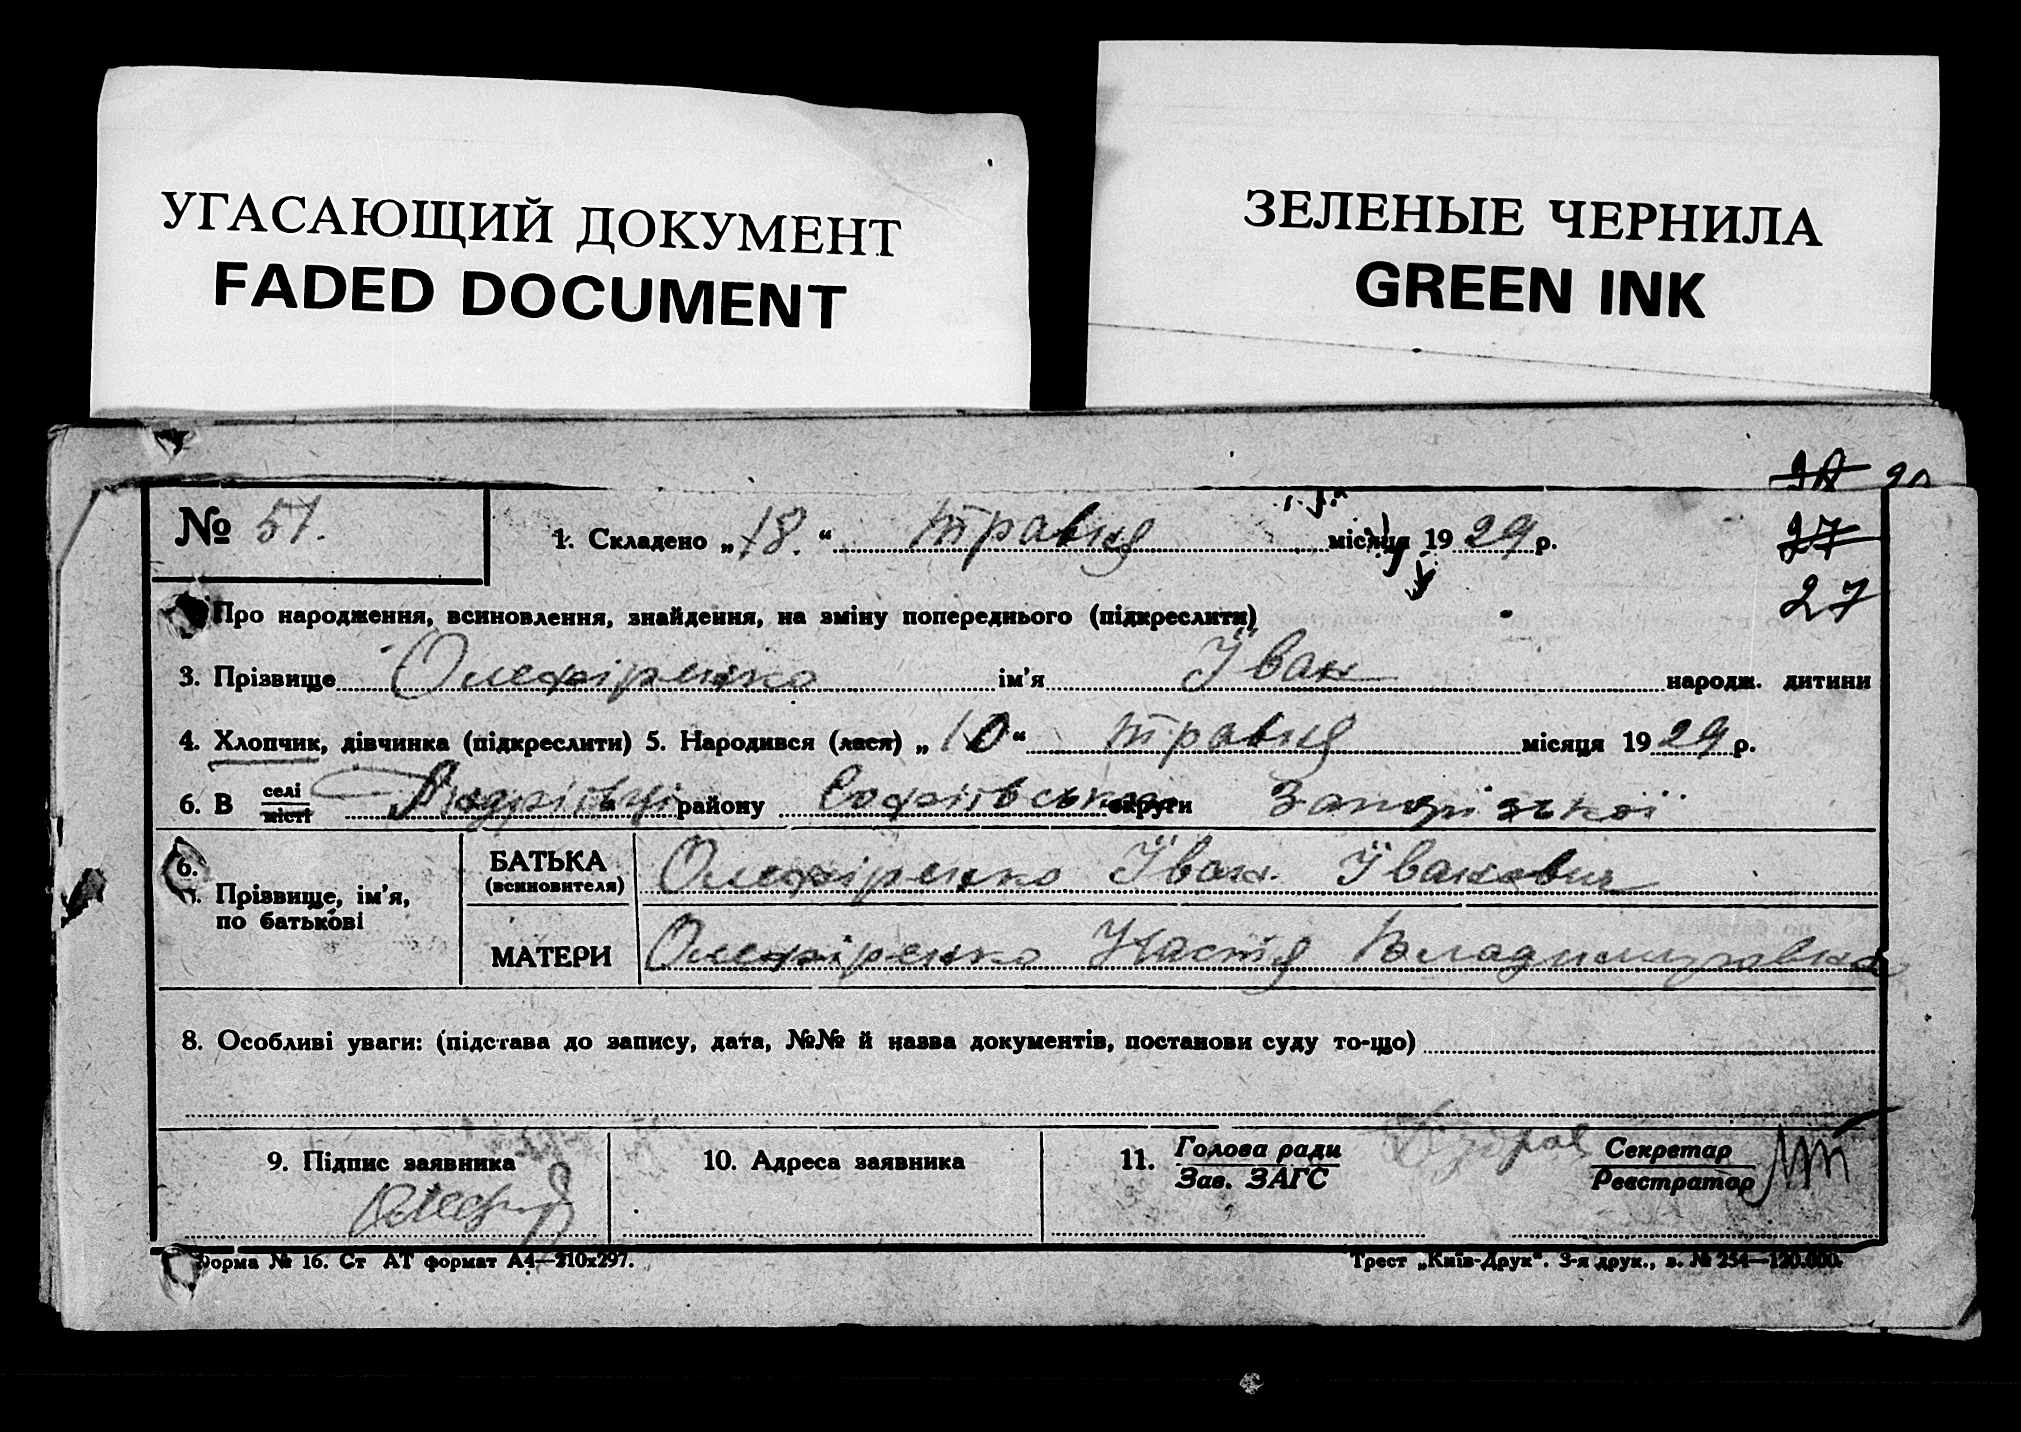 УГАСАЮЩИЙ ДОКУМЕНТ
FADED DOCUMENT
ЗЕЛЕНЫЕ ЧЕРНИЛА
GREEN INK
27
27
№ 51.
1. Складено „18.“ травня місяця 1929 р.
Про народження, всиновлення, знайдення, на зміну попереднього (підкреслити)
3. Прізвище Олефіренко ім'я Їван народж. дитини
4. Хлопчик, дівчинка (підкреслити) 5. Народився (лася) „10“ травня місяця 1929 р.
6. В селі місті Андріївці району Софіївського округи Запорізької
6. Прізвище, ім'я, по батькові
БАТЬКА (всиновителя) Олефіренко Їван Їванович
МАТЕРИ Олефіренко Настя Владимировна
8. Особливі уваги: (підстава до запису, дата, №№ й назва документів, постанови суду то-що)
9. Підпис заявника
10. Адреса заявника
11. Голова ради Зав. ЗАГС
Секретар Реєстратор
Форма № 16. Ст АТ формат А4—210х297.
Трест „Київ-Друк“. 3-я друк., з. № 254—120.000.